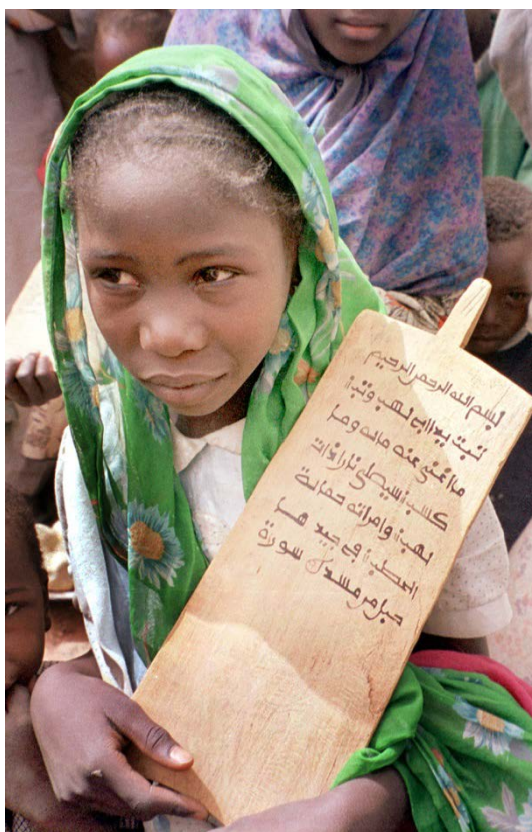 بسم الله الرحمن الرحيم
تبت يدا ابي لهب وتب
ما اغنى عنه ماله وما
كسب سيصلى نارا ذات
لهب وامراته حمالة
الحطب في جيدها
حبل من مسد سورة